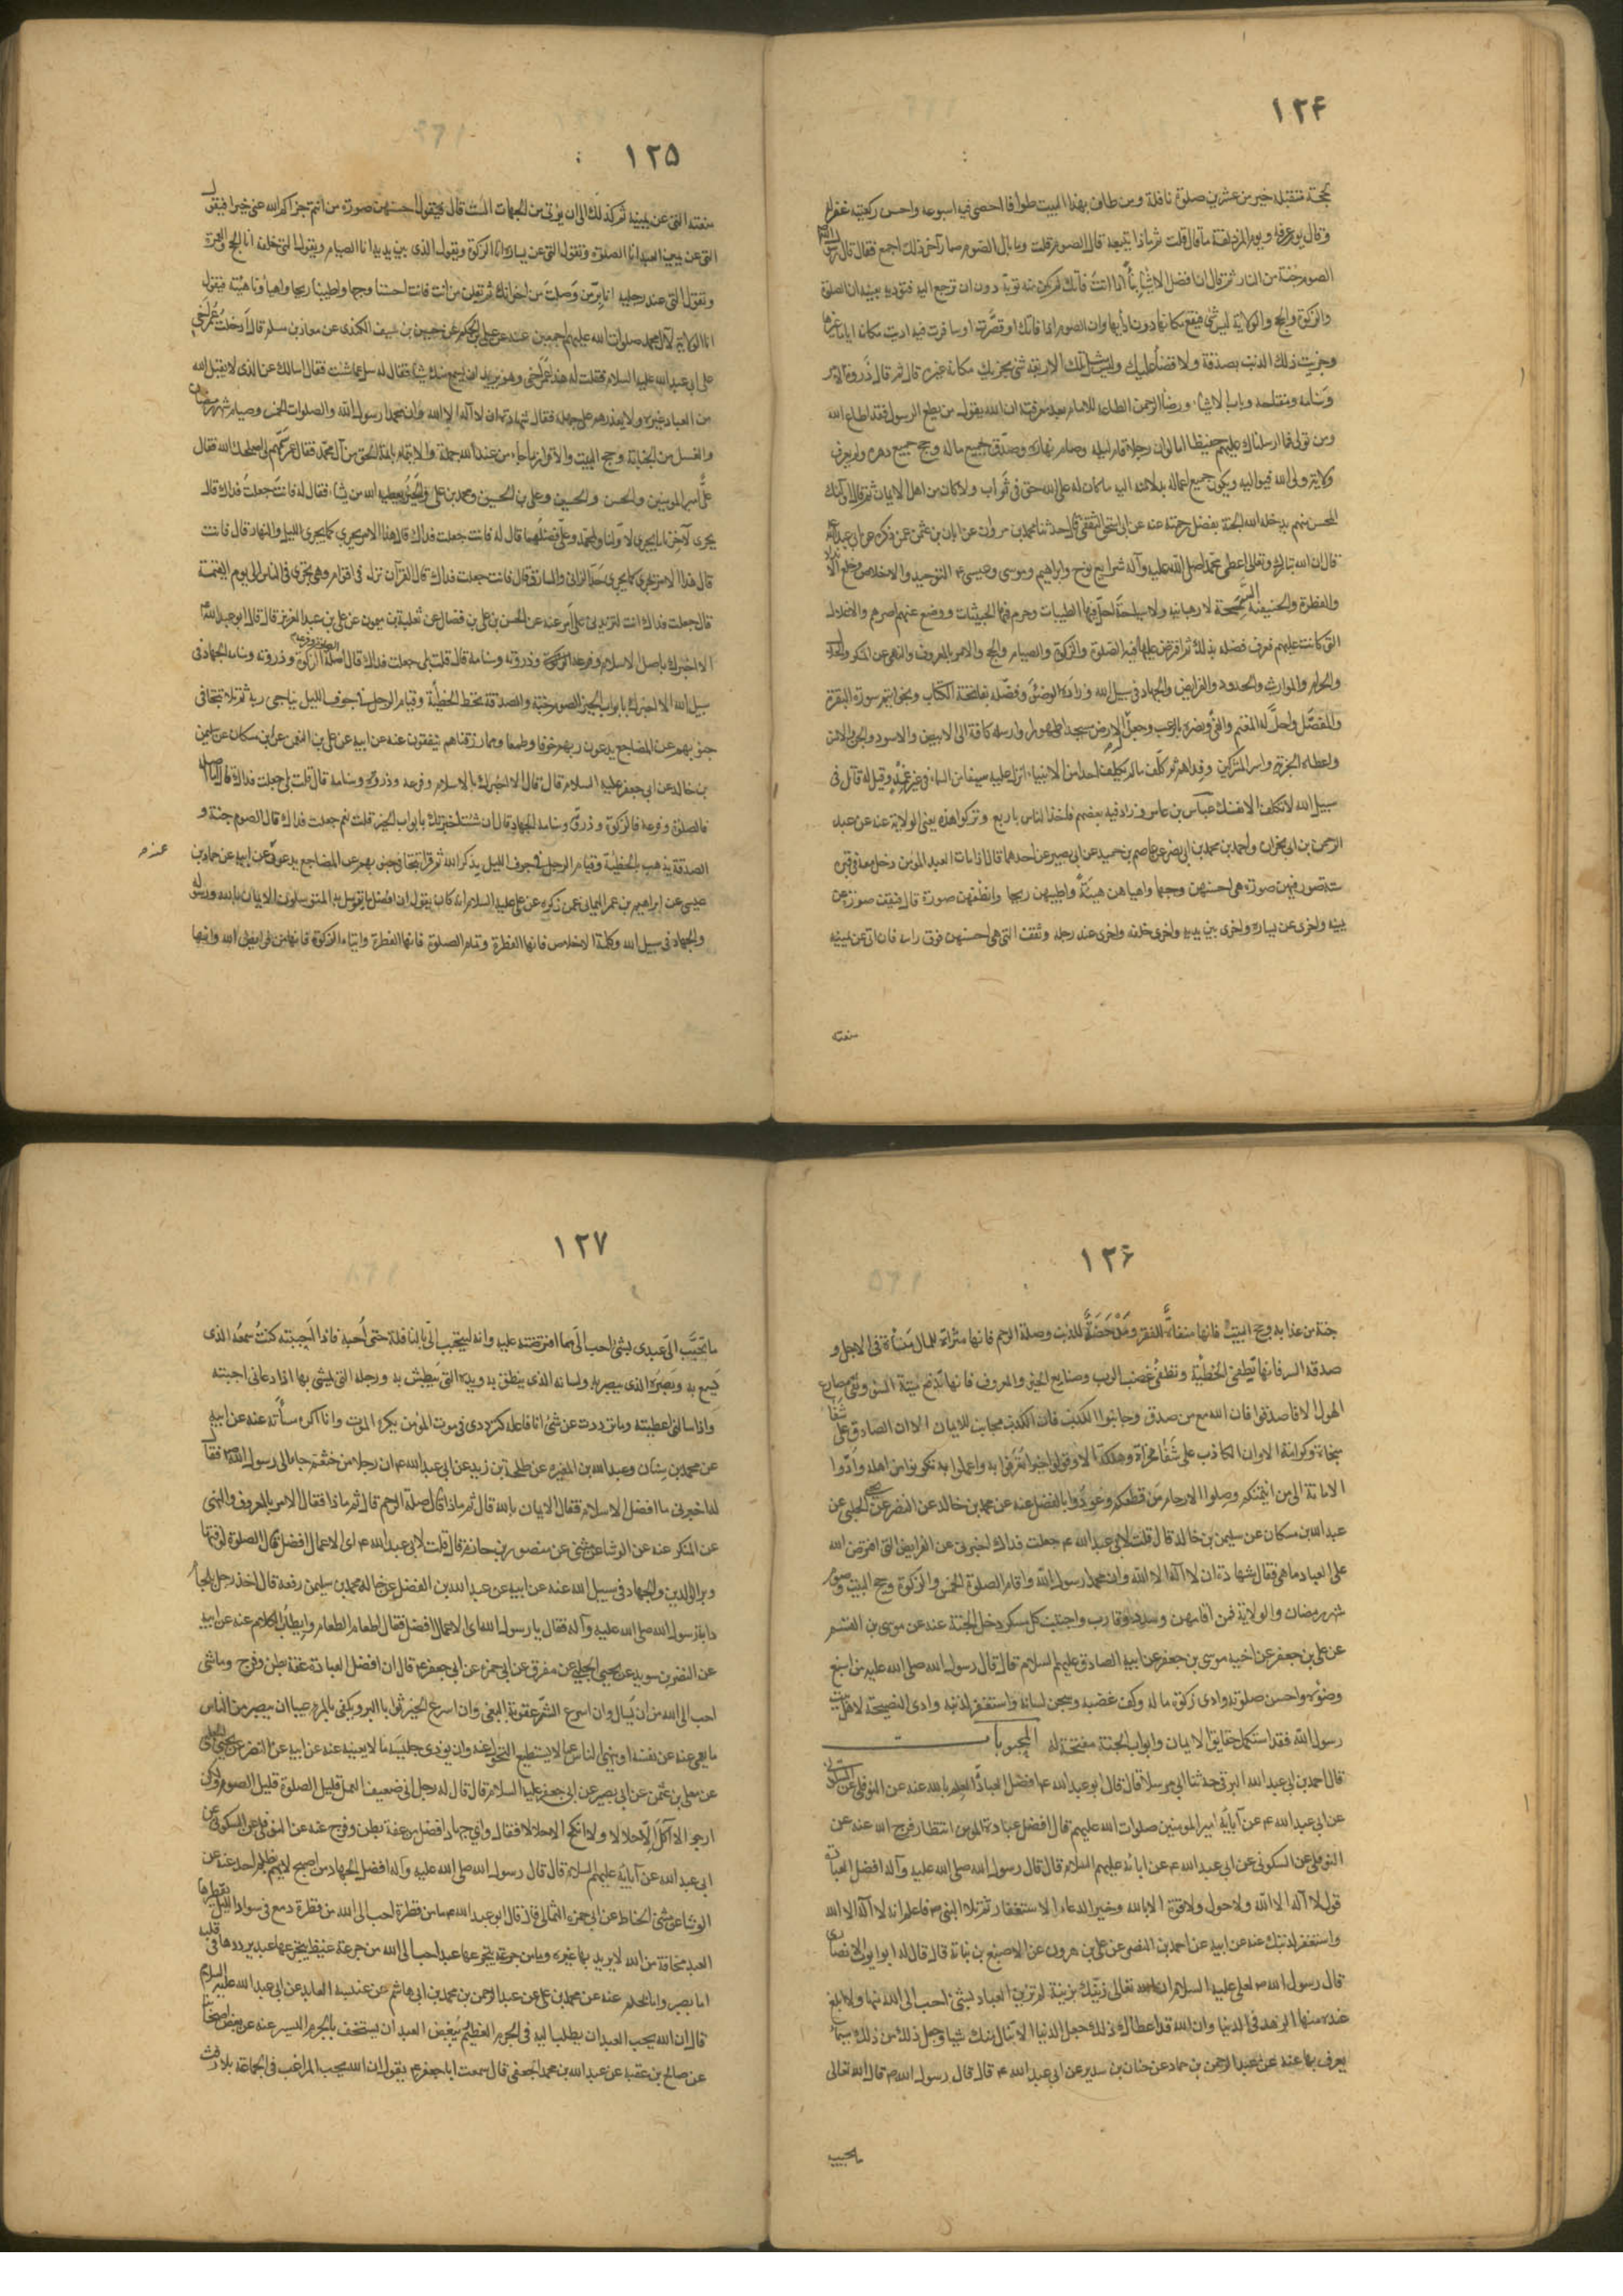 ١٢۴
بحجة متقبله خير من عشرين صلوة نافلة ومن طاف بهذا البيت طوافا احصى فيه اسبوعه واحسن ركعتيه غفر له
وقال يوم عرفه ويوم المزدلفة ما قال قلت ثم ماذا يتبعه قال الصوم قلت وما بال الصوم صار آخر ذلك اجمع فقال قال رسول الله
الصوم جنة من النار ثم قال ان افضل الاشياء ما اذا فاتك لم يكن منه توبة دون ان ترجع اليه فتؤديه بعينه ان الصلوة
والزكوة والحج والولاية ليس شئ يقع مكانها دون ادائها وان الصوم اذا فاتك او قصرت او سافرت فيه اديت مكانه اياما غيرها
وجزيت ذلك الذنب بصدقة ولا قضاء عليك وليس مثل تلك الاربعة شئ يجزيك مكانه غيره قال ثم قال ذروة الامر
وسنامه ومفتاحه وباب الاشياء ورضا الرحمن الطاعة للامام بعد معرفته ان الله يقول من يطع الرسول فقد اطاع الله
ومن تولى فما ارسلناك عليهم حفيظا اما لو ان رجلا قام ليله وصام نهاره وتصدق جميع ماله وحج جميع دهره ولم يعرف
ولاية ولى الله فيواليه ويكون جميع اعماله بدلالته اليه ما كان له على الله حق فى ثواب ولا كان من اهل الايمان ثم قال اولئك
المحسن منهم يدخله الله الجنة بفضل رحمته عنه عن ابى اسحق الثقفى قال حدثنا محمد بن مروان عن ابان بن عثمن عمن ذكره عن ابى عبد الله
قال ان الله تبارك وتعالى اعطى محمدا صلى الله عليه وآله شرايع نوح وابراهيم وموسى وعيسى ع التوحيد والاخلاص وخلع الانداد
والفطرة والحنيفية السمحة لا رهبانية ولا سياحة احل فيها الطيبات وحرم فيها الخبيثات ووضع عنهم اصرهم والاغلال
التى كانت عليهم فعرف فضله بذلك ثم افترض عليها فيه الصلوة والزكوة والصيام والحج والامر بالمعروف والنهى عن المنكر والحلال
والحرام والمواريث والحدود والفرايض والجهاد فى سبيل الله وزاده الوضوء وفضله بفاتحة الكتاب وبخواتيم سورة البقرة
والمفصل واحل له المغنم والفئ ونصره بالرعب وجعل له الارض مسجدا وطهورا وارسله كافة الى الابيض والاسود والجن والانس
واعطاه الجزية واسر المشركين وفداهم ثم كلف ما لم يكلف احد من الانبياء انزل عليه سيفا من السماء فى غير غمد وقيل له قاتل فى
سبيل الله لا تكلف الا نفسك عباس بن عامر وزاد فيه بعضهم فاخذ الناس باربع وتركوا هذه يعنى الولاية عنه عن عبد
الرحمن بن ابى نجران واحمد بن محمد بن ابى نصر عن عاصم بن حميد عن ابى بصير عن احدهما قال اذا مات العبد المؤمن دخل معه فى قبره
ستة صور فيهن صورة هى احسنهن وجها وابهاهن هيئة واطيبهن ريحا وانظفهن صورة قال فيقف صورة عن
يمينه واخرى عن يساره واخرى بين يديه واخرى خلفه واخرى عند رجله وتقف التى هى احسنهن فوق راسه فان اتى عن يمينه
منعته
١٢۵
منعته التى عن يمينه ثم كذلك الى ان يؤتى من الجهات الست قال فتقول احسنهن صورة من انتم جزاكم الله عنى خيرا فيقول
التى عن يمين العبد انا الصلوة وتقول التى عن يساره انا الزكوة وتقول الذى بين يديه انا الصيام ويقول التى خلفه انا الحج والعمرة
وتقول التى عند رجليه انا بر من وصلت من اخوانك ثم تقلن من انت فانت احسننا وجها واطيبنا ريحا وابهانا هيئة فيقول
انا الولاية لآل محمد صلوات الله عليهم اجمعين عنه عن على بن الحكم عن حسين بن سيف الكندى عن معاذ بن مسلم قال ادخلت عمر اخى
على ابى عبد الله عليه السلام فقلت له هذا عمر اخى وهو يريد ان يسمع منك شيئا فقال له سل عما شئت فقال اسالك عن الذى لا يقبل الله
من العباد غيره ولا يعذرهم على جهله فقال شهادة ان لا اله الا الله وان محمدا رسول الله والصلوات الخمس وصيام شهر رمضان
والغسل من الجنابة وحج البيت والاقرار بما جاء من عند الله جملة والايتمام بائمة الحق من آل محمد فقال عمر سمهم لى اصلحك الله فقال
على امير المومنين والحسن والحسين وعلى بن الحسين ومحمد بن على والخير يعطيه الله من يشاء فقال له فانت جعلت فداك قال
يجرى لآخرنا ما يجرى لاولنا ولمحمد وعلى فضلهما قال له فانت جعلت فداك قال هذا الامر يجرى كما يجرى الليل والنهار قال فانت
قال هذا الامر يجرى كما يجرى حد الزانى والسارق قال فانت جعلت فداك قال القرآن نزل فى اقوام وهى تجرى فى الناس الى يوم القيمة
قال جعلت فداك انت لتزيدنى على امر عنه عن الحسن بن على بن فضال عن ثعلبة بن ميمون عن على بن عبد العزيز قال قال ابو عبد الله
الا اخبرك باصل الاسلام وفرعه وذروته وسنامه قال قلت بلى جعلت فداك قال اصله الصلوة وفرعه الزكوة وذروته وسنامه الجهاد فى
سبيل الله الا اخبرك بابواب الخير الصوم جنة والصدقة تحط الخطيئة وقيام الرجل فى جوف الليل يناجى ربه ثم تلا تتجافى
جنوبهم عن المضاجع يدعون ربهم خوفا وطمعا ومما رزقناهم ينفقون عنه عن ابيه عن على بن النعمن عن ابن مسكان عن سليمن
بن خالد عن ابى جعفر عليه السلام قال قال الا اخبرك بالاسلام وفرعه وذروته وسنامه قال قلت بلى جعلت فداك قال اما اصله
فالصلوة وفرعه فالزكوة وذروته وسنامه الجهاد قال ان شئت اخبرتك بابواب الخير قلت نعم جعلت فداك قال الصوم جنة و
الصدقة يذهب بالخطيئة وقيام الرجل فى جوف الليل يذكر الله ثم قرا تتجافى جنوبهم عن المضاجع يدعون عن ابيه عن حماد بن
عيسى عن ابراهيم بن عمر اليمانى عمن ذكره عن على عليه السلام انه كان يقول ان افضل ما يتوسل به المتوسلون الايمان بالله ورسوله
والجهاد فى سبيل الله وكلمة الاخلاص فانها الفطرة وتمام الصلوة فانها الفطرة وايتاء الزكوة فانها من فرايض الله وانها
١٢۶
جنة من عذابه وحج البيت فانها منفاة للفقر ومدحضة للذنب وصلة الرحم فانها مثراة للمال منساة فى الاجل و
صدقة السر فانها تطفئ الخطيئة وتطفئ غضب الرب وصنايع الخير والمعروف فانها تدفع ميتة السوء وتقى مصارع
الهول الا فاصدقوا فان الله مع من صدق وجانبوا الكذب فان الكذب مجانب للايمان الا ان الصادق على شفا
منجاة وكرامة الا وان الكاذب على شفا مخزاة وهلكة الا وقولوا خيرا تعرفوا به واعملوا به تكونوا من اهله وادوا
الامانة الى من ائتمنكم وصلوا الارحام من قطعكم وعودوا بالفضل عنه عن محمد بن خالد عن النضر عن يحيى الحلبى عن
عبد الله بن مسكان عن سليمن بن خالد قال قلت لابى عبد الله ع جعلت فداك اخبرنى عن الفرايض التى افترض الله
على العباد ما هى فقال شهادة ان لا اله الا الله وان محمدا رسول الله واقام الصلوة الخمس والزكوة وحج البيت وصوم
شهر رمضان والولاية فمن اقامهن وسدد وقارب واجتنب كل مسكر دخل الجنة عنه عن موسى بن القسم
عن على بن جعفر عن اخيه موسى بن جعفر عن ابيه الصادق عليهم السلام قال قال رسول الله صلى الله عليه من اسبغ
وضوءه واحسن صلوته وادى زكوة ماله وكف غضبه وسجن لسانه واستغفر لذنبه وادى النصيحة لاهل بيت
رسول الله فقد استكمل حقايق الايمان وابواب الجنة مفتحة له المحبوبات
قال احمد بن ابى عبد الله البرقى حدثنا ابى مرسلا قال قال ابو عبد الله ع افضل العبادة العلم بالله عنه عن النوفلى عن السكونى
عن ابى عبد الله ع عن آبائه امير المومنين صلوات الله عليهم قال افضل عبادة المومن انتظار فرج الله عنه عن
النوفلى عن السكونى عن ابى عبد الله ع عن ابائه عليهم السلام قال قال رسول الله صلى الله عليه وآله افضل العبادة
قول لا اله الا الله ولا حول ولا قوة الا بالله وخير الدعاء الاستغفار ثم تلا النبى ص فاعلم انه لا اله الا الله
واستغفر لذنبك عنه عن ابيه عن احمد بن النضر عن على بن هرون عن الاصبغ بن نباتة قال قال له ابو ايوب الانصارى
قال رسول الله ص لعلى عليه السلام ان الله تعالى زينك بزينة لم تزين العباد بشئ احب الى الله منها ولا ابلغ
عنده منها الزهد فى الدنيا وان الله قد اعطاك ذلك وجعل الدنيا لا تنال منك شيئا وجعل ذلك من ذلك سيماء
يعرف بها عنه عن عبد الرحمن بن حماد عن حنان بن سدير عن ابى عبد الله ع قال قال رسول الله ص قال الله تعالى
ما تحبب
١٢٧
ما تحبب الى عبدى بشئ احب الى مما افترضته عليه وانه ليتحبب الى بالنافلة حتى احبه فاذا احببته كنت سمعه الذى
يسمع به وبصره الذى يبصر به ولسانه الذى ينطق به ويده التى يبطش به ورجله التى يمشى بها اذا دعانى اجبته
واذا سالنى اعطيته وما ترددت عن شئ انا فاعله كترددى فى موت المؤمن يكره الموت وانا اكره مسائته عنه عن ابيه
عن محمد بن سنان وعبد الله بن المغيره عن طلحة بن زيد عن ابى عبد الله ع ان رجلا من خثعم جاء الى رسول الله ص فقال
له اخبرنى ما افضل الاسلام فقال الايمان بالله قال ثم ماذا قال صلة الرحم قال ثم ماذا فقال الامر بالمعروف والنهى
عن المنكر عنه عن الوشاء عن مثنى عن منصور بن حازم قال قلت لابى عبد الله ع اى الاعمال افضل قال الصلوة لوقتها
وبر الوالدين والجهاد فى سبيل الله عنه عن ابيه عن عبد الله بن الفضل عن خاله محمد بن سليمن رفعه قال اخذ رجل بلجام
دابة رسول الله صلى الله عليه وآله فقال يا رسول الله اى الاعمال افضل فقال اطعام الطعام واطياب الكلام عنه عن ابيه
عن النضر بن سويد عن يحيى الحلبى عن مفرق عن ابى حمزه عن ابى جعفر ع قال ان افضل العبادة عفة بطن وفرج وما شئ
احب الى الله من ان يسال وان اسرع الشر عقوبة البغى وان اسرع الخير ثوابا البر وكفى بالمرء عيبا ان يبصر من الناس
ما يعمى عنه عن نفسه او ينهى الناس عما لا يستطيع التحول عنه وان يوذى جليسه بما لا يعنيه عنه عن ابيه عن النضر عن يحيى الحلبى
عن معلى بن عثمن عن ابى بصير عن ابى جعفر عليه السلام قال قال له رجل انى ضعيف العمل قليل الصلوة قليل الصوم ولكن
ارجو الا آكل الا حلالا ولا انكح الا حلالا فقال واى جهاد افضل من عفة بطن وفرج عنه عن النوفلى عن السكونى عن
ابى عبد الله عن آبائه عليهم السلام قال قال رسول الله صلى الله عليه وآله افضل الجهاد من اصبح لا يهم بظلم احد عنه عن
الوشا عن مثنى الحناط عن ابى حمزه الثمالى قال قال ابو عبد الله ع ما من قطرة احب الى الله من قطرة دمع فى سواد الليل يقطرها
العبد مخافة من الله لا يريد بها غيره وما من جرعة يتجرعها عبد احب الى الله من جرعة غيظ يتجرعها عبد يرددها فى قلبه
اما بصبر واما بحلم عنه عن محمد بن على عن عبد الرحمن بن محمد بن ابى هاشم عن عنبسة العابد عن ابى عبد الله عليه السلام
قال ان الله يحب العبد ان يطلب اليه فى الجرم العظيم ويبغض العبد ان يستخف بالجرم اليسير عنه عن بعض اصحابنا
عن صالح بن عقبه عن عبد الله بن محمد الجعفى قال سمعت ابا جعفر ع يقول ان الله يحب المداعب فى الجماعة بلا رفث